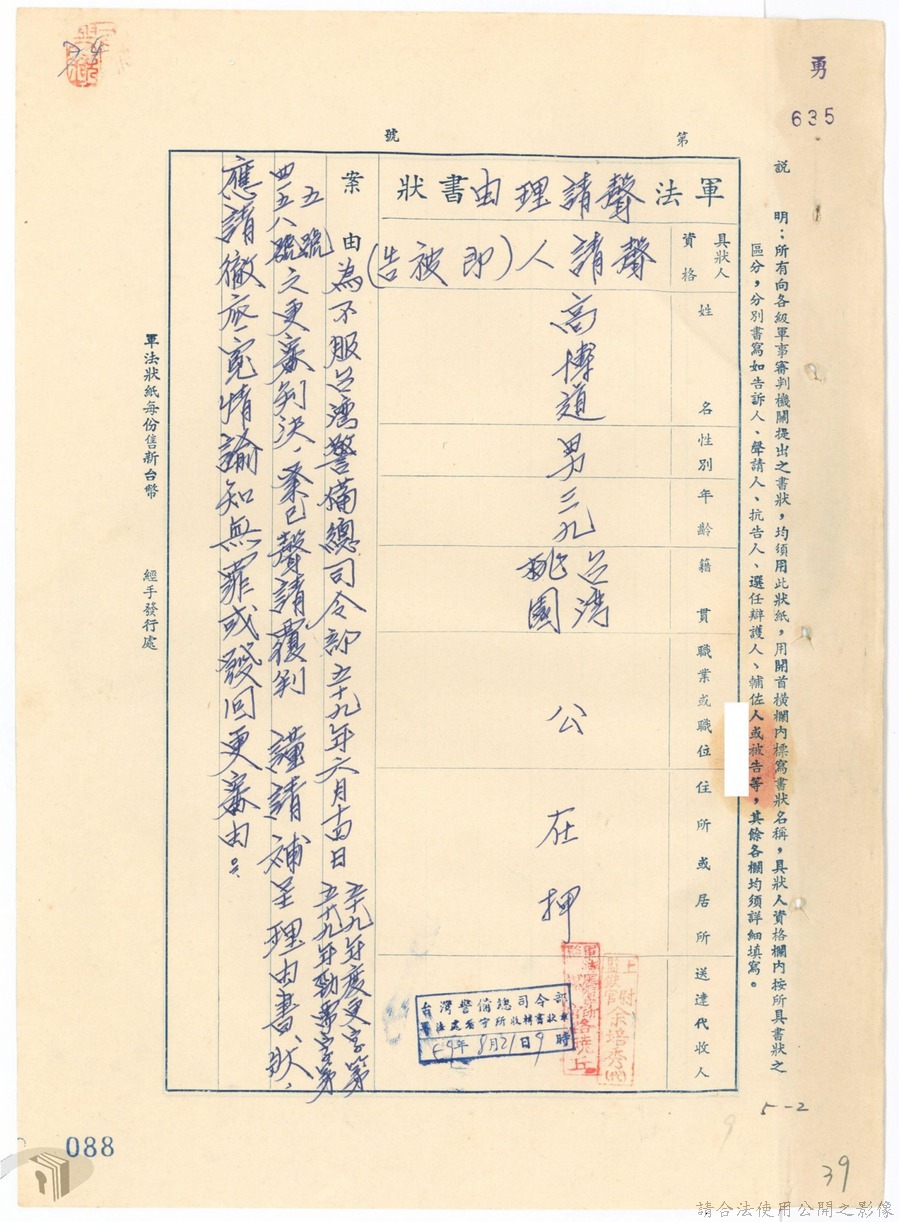 勇
635
第　　號
說　明：所有向各級軍事審判機關提出之書狀，均須用此狀紙，用開首橫欄內標寫書狀名稱，具狀人資格欄內按所具書狀之
區分，分別書寫如告訴人、聲請人、抗告人、選任辯護人、輔佐人或被告等，其餘各欄均須詳細填寫。
軍法聲請理由書狀
具狀人資格
聲請人（即被告）
姓名
高博道
性別
男
年齡
三九
籍貫
台灣
桃園
職業或職位
公
住所或居所
在押
送達代收人
台灣警備總司令部
軍法處看守所收轉書狀章
59年8月21日9時
案由
為不服台灣警備總司令部五十九年六月十四日
五十九年度更字第
五十九年勁需字第
五號
四五八號
之更審判決，業已聲請覆判 謹請補呈理由書狀，
應請徹底究情諭知無罪或發回更審由。
軍法狀紙每份售新台幣　　經手發行處
5-2
39
088
請合法使用公開之影像